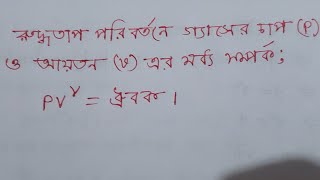 রুদ্ধতাপ পরিবর্তনে গ্যাসের চাপ (P)
ও আয়তন (V) এর মধ্য সম্পর্ক;
PV^γ = ধ্রুবক ।